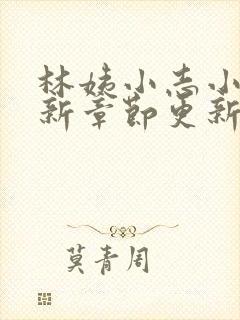 林姨小志小
新章节更新
莫青周